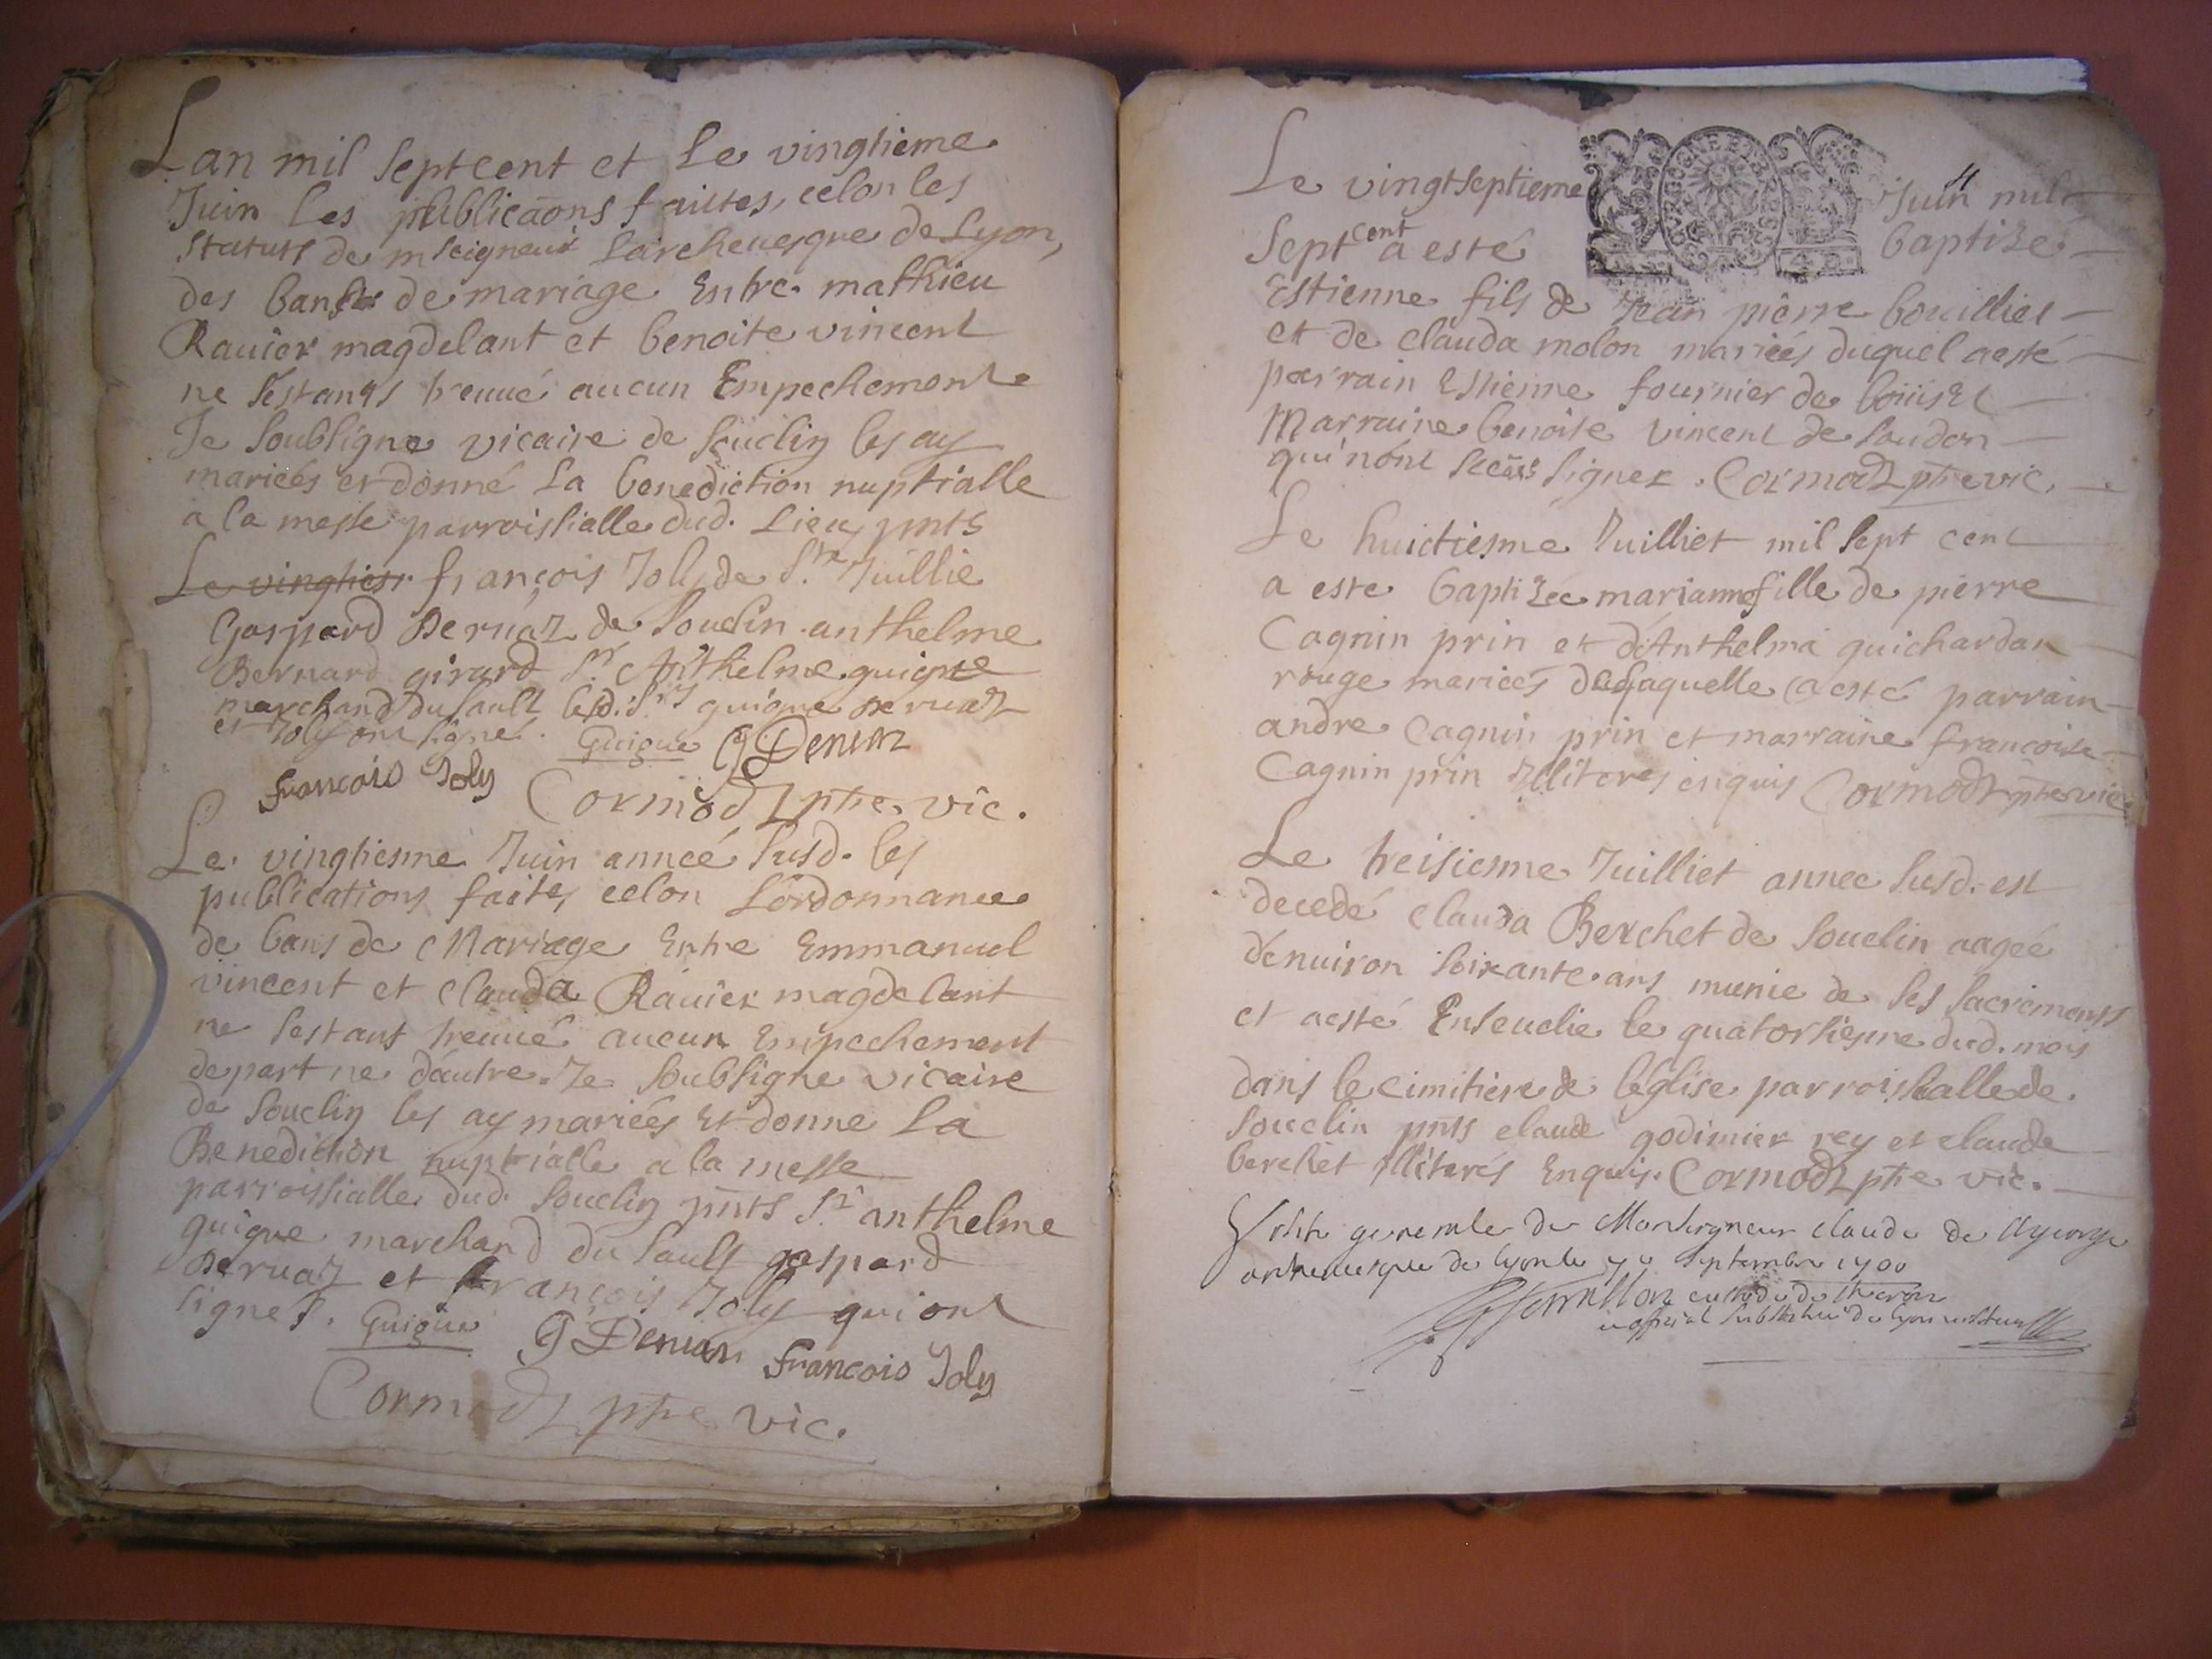 Lan mil septcent et Le vingtieme
Juin les publicaons faittes, celon les
statuts de mseigneur Larcheuesque de Lyon,
des bans de mariage Entre mathieu
Rauier magdelant et benoite vincent
ne sestants treuué aucun Empechement
Je soubsigne vicaire de souclin les ay
mariées et donné La benediction nuptialle
a la messe parroissialle dud. Lieu pnts
Le vingties françois Joly de St. Juillie
Gaspard Deruaz de souclin anthelme
Bernard girard Sr. Anthelme guigue
marchand du sault lesd. Srs guigue Deruaz
et Joly ont signé.
Guigue G Deruaz
francois Joly
Cormodz ptre vic.
Le vingtiesme Juin année susd. les
publications faites celon Lordonnance
de bans de Mariage Entre Emmanuel
vincent et clauda Rauier magdelant
ne sestant treuué aucun Empechement
depart ne dautre. Je soubsigne vicaire
de souclin les ay mariées Et donne La
Benediction nuptialle a la messe
parroissialle dud. souclin pnts Sr anthelme
guigue marchand du sault gaspard
Deruaz et françois Joly qui ont
signes. Guigue G Deruaz francois Joly
Cormodz ptre vic.
Le vingtseptieme Juin mil
sept cent a esté baptize
Estienne fils de Jean pierre bouillier
et de clauda molon mariées duquel aesté
parrain Estienne fournier de
Marraine benoite vincent de soudon
qui nont signer. Cormodz ptre vic.
Le huictiesme Juilliet mil sept cent
a este baptizée marianne fille de pierre
Cagnin prin et d'Anthelma guichardan
rouge mariées delaquelle a esté parrain
andre Cagnin prin et marraine francoise
Cagnin prin Illiteres enquis Cormodz ptre vic.
Le treisiesme Juilliet annee susd. est
decedé clauda Berchet de souclin aagée
denuiron soixante ans munie de ses sacrements
et aesté Enseuelie le quatorsiesme dud. mois
dans le cimitiere de leglise parroissialle de
souclin pnts claude godimier rey et claude
berchet Illiterés Enquis. Cormodz ptre vic.
Visite generale de Monseigneur claude de
archeuesque de Lyon le septembre 1700